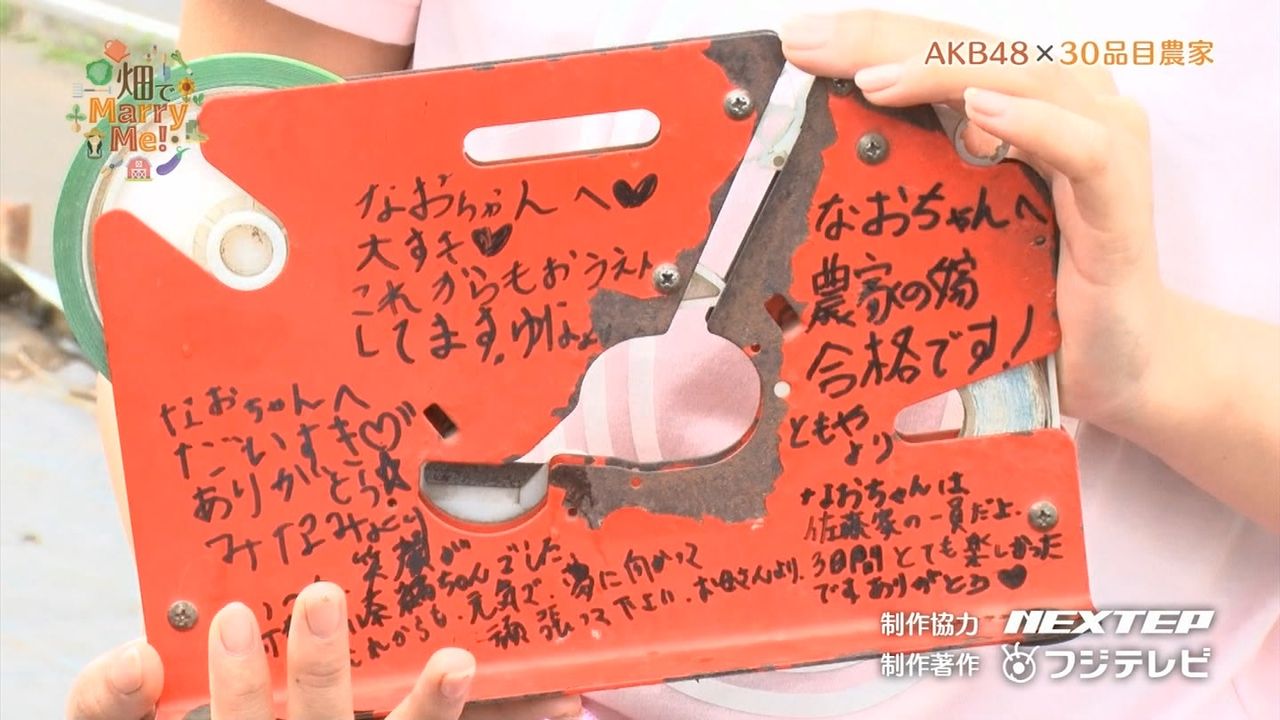 畑で
Marry
Me!
AKB48×30品目農家
なおちゃんへ♥
大すき♥
これからもおうえん
してます。ゆりより
なおちゃんへ
農家の嫁
合格です!
ともや
より
なおちゃんへ
だいすき♡
ありがとう☆
みなみより
笑顔が
奈緒ちゃんでした
これからも、元気で、夢に向かって
頑張って下さい。お母さんより。
なおちゃんは
佐藤家の一員だよ。
3日間とても楽しかった
ですありがとう♥
制作協力 NEXTEP
制作著作 フジテレビ